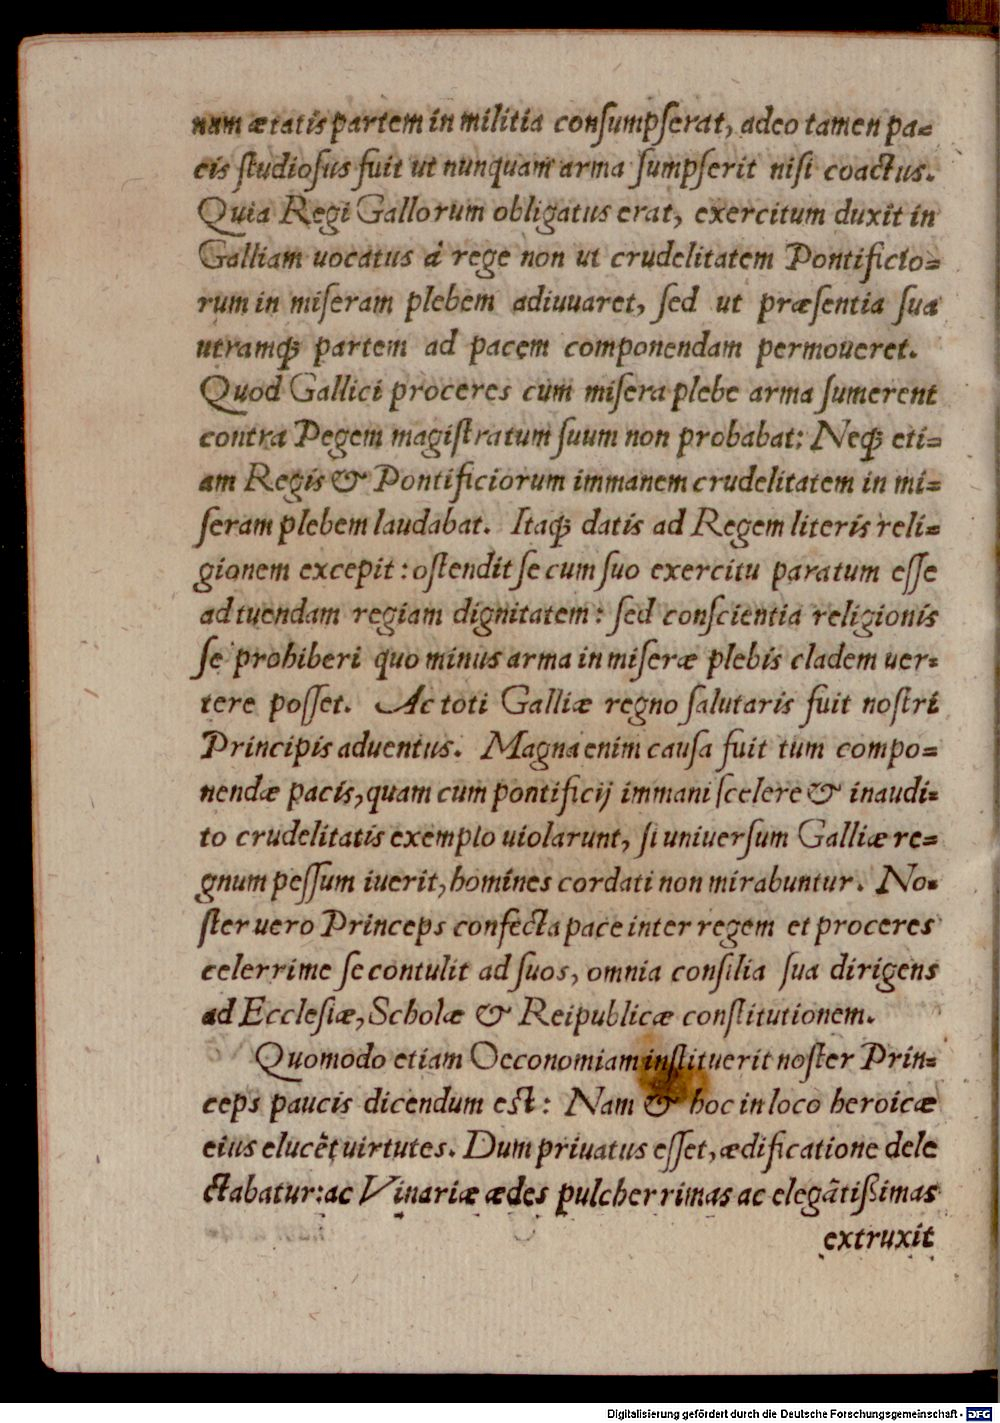 nam ætatis partem in militia conſumpſerat, adeo tamen pa=
cis ſtudioſus fuit ut nunquam arma ſumpſerit niſi coactus.
Quia Regi Gallorum obligatus erat, exercitum duxit in
Galliam uocatus á rege non ut crudelitatem Pontificio=
rum in miſeram plebem adiuuaret, ſed ut præſentia ſua
utramq́ꝫ partem ad pacem componendam permoueret.
Quod Gallici proceres cum miſera plebe arma ſumerent
contra Pegem magiſtratum ſuum non probabat: Neq́ꝫ eti=
am Regis & Pontificiorum immanem crudelitatem in mi=
ſeram plebem laudabat. Itaq́ꝫ datis ad Regem literis reli=
gionem excepit: oſtendit ſe cum ſuo exercitu paratum eſſe
ad tuendam regiam dignitatem: ſed conſcientia religionis
ſe prohiberi quo minus arma in miſeræ plebis cladem uer=
tere poſſet. Ac toti Galliæ regno ſalutaris fuit noſtri
Principis aduentus. Magna enim cauſa fuit tum compo=
nendæ pacis, quam cum pontificij immani ſcelere & inaudi=
to crudelitatis exemplo uiolarunt, ſi uniuerſum Galliæ re=
gnum peſſum iuerit, homines cordati non mirabuntur. No=
ſter uero Princeps confecta pace inter regem et proceres
celerrime ſe contulit ad ſuos, omnia conſilia ſua dirigens
ad Eccleſiæ, Scholæ & Reipublicæ conſtitutionem.
Quomodo etiam Oeconomiam inſtituerit noſter Prin=
ceps paucis dicendum eſt: Nam & hoc in loco heroicæ
eius elucẽt uirtutes. Dum priuatus eſſet, ædificatione dele
ctabatur: ac Vinariæ ædes pulcherrimas ac elegãtißimas
extruxit
Digitalisierung gefördert durch die Deutsche Forschungsgemeinschaft - DFG